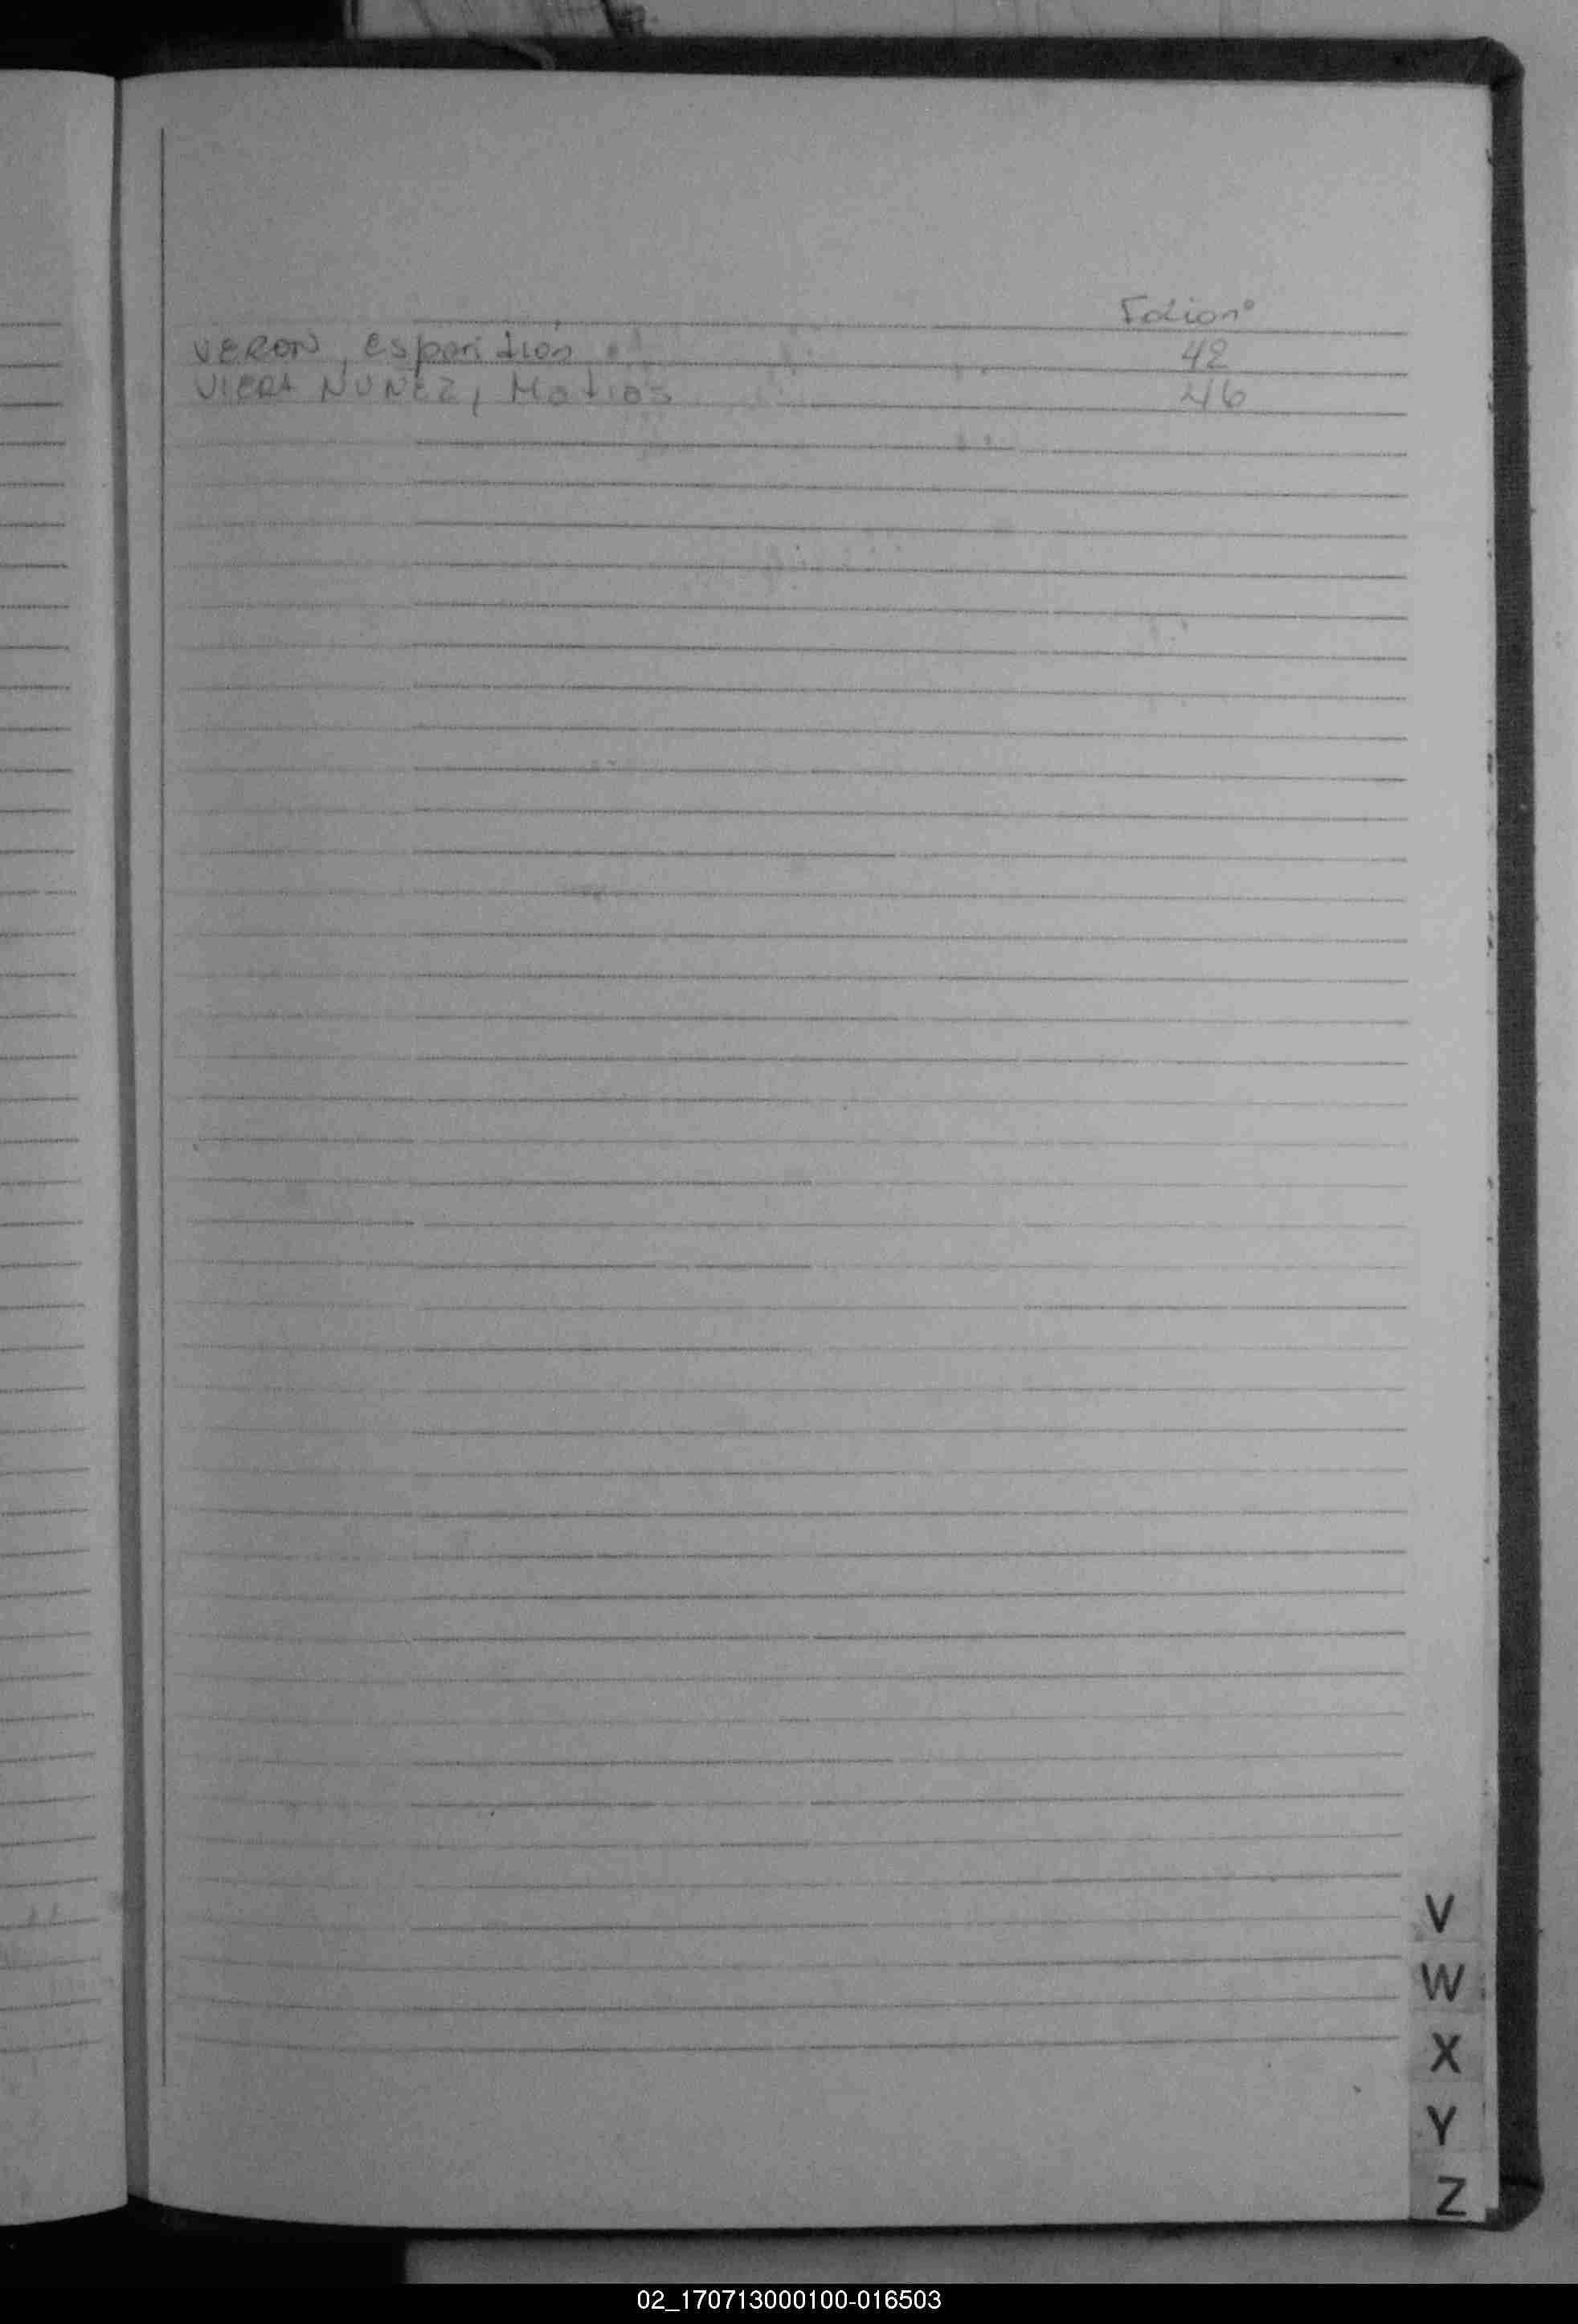 Folio nº
VERON, esparition 42
VIERA NUÑEZ, Matias 46
V
W
X
Y
Z
02_170713000100-016503